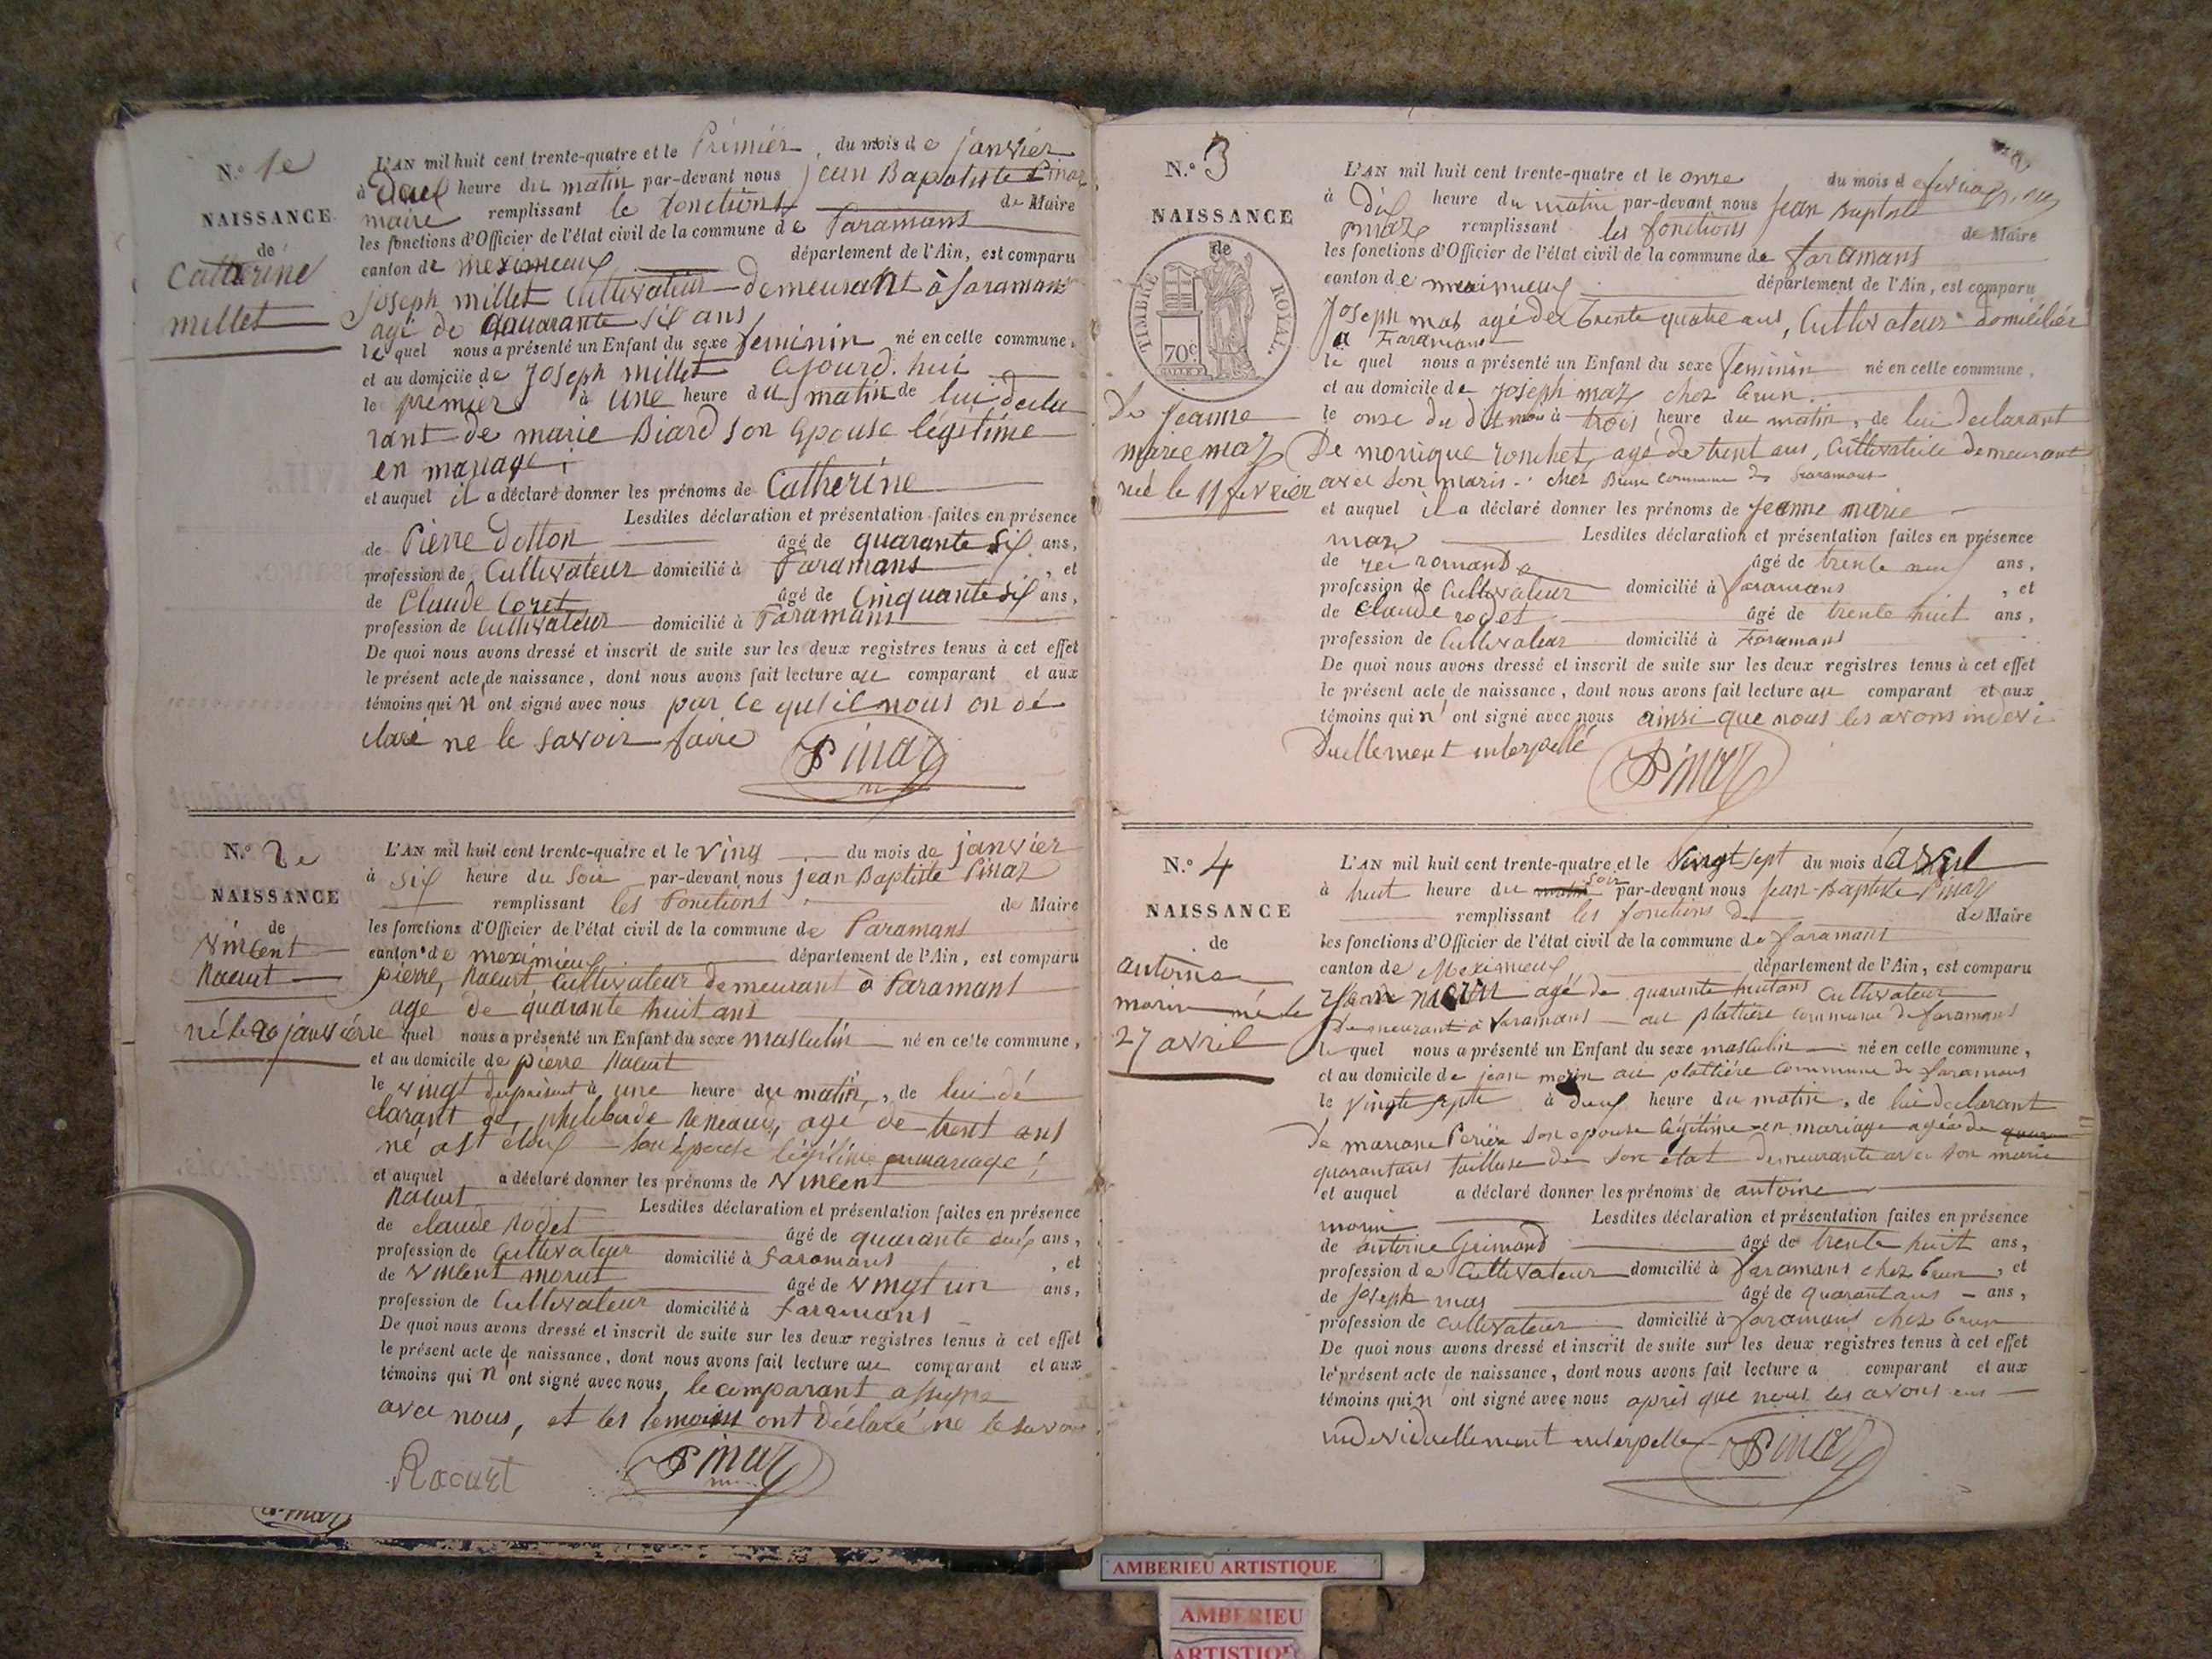 N.º 1e
NAISSANCE
de
Catherine
millet
L'AN mil huit cent trente-quatre et le Premier du mois de janvier
à heure du matin par-devant nous jean Baptiste Pinaz
maire remplissant le fonctions de Maire
les fonctions d'Officier de l'état civil de la commune de Faramans
canton de meximieux département de l'Ain, est comparu
joseph millet Cultivateur demeurant à faramans
agé de quarante six ans
le quel nous a présenté un Enfant du sexe feminin né en celle commune,
et au domicile de Joseph millet aujourd'hui
le premier à une heure du matin de lui decla
rant de marie Biard son epouse légitime
en mariage
et auquel il a déclaré donner les prénoms de Catherine
Lesdites déclaration et présentation faites en présence
de Pierre Dotton âgé de quarante six ans,
profession de Cultivateur domicilié à Faramans, et
de Claude Coret âgé de Cinquante six ans,
profession de Cultivateur domicilié à Faramans
De quoi nous avons dressé et inscrit de suite sur les deux registres tenus à cet effet
le présent acte de naissance, dont nous avons fait lecture au comparant et aux
témoins qui n'ont signé avec nous par ce qu'il nous on dé
claré ne le savoir faire
Pinaz
N.º 2e
NAISSANCE
de
Vincent
né le 20 janvier
L'AN mil huit cent trente-quatre et le ving du mois de janvier
à six heure du soir par-devant nous jean Baptiste Pinaz
remplissant les fonctions de Maire
les fonctions d'Officier de l'état civil de la commune de Faramans
canton de meximieux département de l'Ain, est comparu
pierre, Cultivateur demeurant à Faramans
age de quarante huit ans
le quel nous a présenté un Enfant du sexe masculin né en cette commune,
et au domicile de pierre
le vingt du présent à une heure du matin, de lui dé
clarant de, agé de trent ans
son épouse légitime en mariage
et auquel a déclaré donner les prénoms de Vincent
Lesdites déclaration et présentation faites en présence
de claude rodet âgé de quarante deux ans,
profession de Cultivateur domicilié à faramans, et
de Vincent morut âgé de vingt un ans,
profession de Cultivateur domicilié à faramans
De quoi nous avons dressé et inscrit de suite sur les deux registres tenus à cet effet
le présent acte de naissance, dont nous avons fait lecture au comparant et aux
témoins qui n'ont signé avec nous, le comparant a signe
avec nous, et les temoins ont déclaré ne le savoir
Racurt Pinaz
N.º 3
NAISSANCE
de
TIMBRE ROYAL.
70c
De Jeanne
marie maz
née le 11 fevrier
L'AN mil huit cent trente-quatre et le onze du mois d
à dix heure du matin par-devant nous Jean Baptiste
pinaz remplissant les fonctions de Maire
les fonctions d'Officier de l'état civil de la commune de faramans
canton de meximieux département de l'Ain, est comparu
Joseph mas agé de trente quatre ans, Cultivateur domicilier
a Faramans
le quel nous a présenté un Enfant du sexe feminin né en celle commune,
et au domicile de joseph maz chez brun
le onze du dit mois à trois heure du matin, de lui declarant
De monique ronchet, agé de trent ans, Cultivatrice demeurant
avec son maris chez Brun commune de Faramans
et auquel il a déclaré donner les prénoms de jeanne marie
maz Lesdites déclaration et présentation faites en présence
de romand âgé de trente neuf ans,
profession de Cultivateur domicilié à faramans, et
de Claude rodet âgé de trente huit ans,
profession de Cultivateur domicilié à Faramans
De quoi nous avons dressé et inscrit de suite sur les deux registres tenus à cet effet
le présent acte de naissance, dont nous avons fait lecture au comparant et aux
témoins qui n'ont signé avec nous ainsi que nous les avons indevi
duellement interpellé
Pinaz
N.º 4
NAISSANCE
de
antoine
morin né le
27 avril
L'AN mil huit cent trente-quatre et le Vingt sept du mois d'avril
à huit heure du soir par-devant nous Jean-Baptiste Pinaz
remplissant les fonctions de de Maire
les fonctions d'Officier de l'état civil de la commune de faramans
canton de Meximieux département de l'Ain, est comparu
morin agé de quarante huitans Cultivateur
demeurant à faramans au plattiere commune de faramans
le quel nous a présenté un Enfant du sexe masculin né en celle commune,
et au domicile de jean morin au plattiére commune de faramans
le Vingte septe à deux heure du matin, de lui declarant
De mariane Periér son epouse légitime en mariage agée de
quarantans tailleuse de son état demeurante avec son marie
et auquel a déclaré donner les prénoms de antoine
morin Lesdites déclaration et présentation faites en présence
de antoine Grimand âgé de trente huit ans,
profession de Cultivateur domicilié à faramans chez brun, et
de joseph mas âgé de quarantans ans,
profession de cultivateur domicilié à faramans chez brun
De quoi nous avons dressé et inscrit de suite sur les deux registres tenus à cet effet
le présent acte de naissance, dont nous avons fait lecture a comparant et aux
témoins qui n'ont signé avec nous aprés que nous les avons eus
individuellement interpelle
Pinaz
AMBERIEU ARTISTIQUE
AMBERIEU
ARTISTIQUE